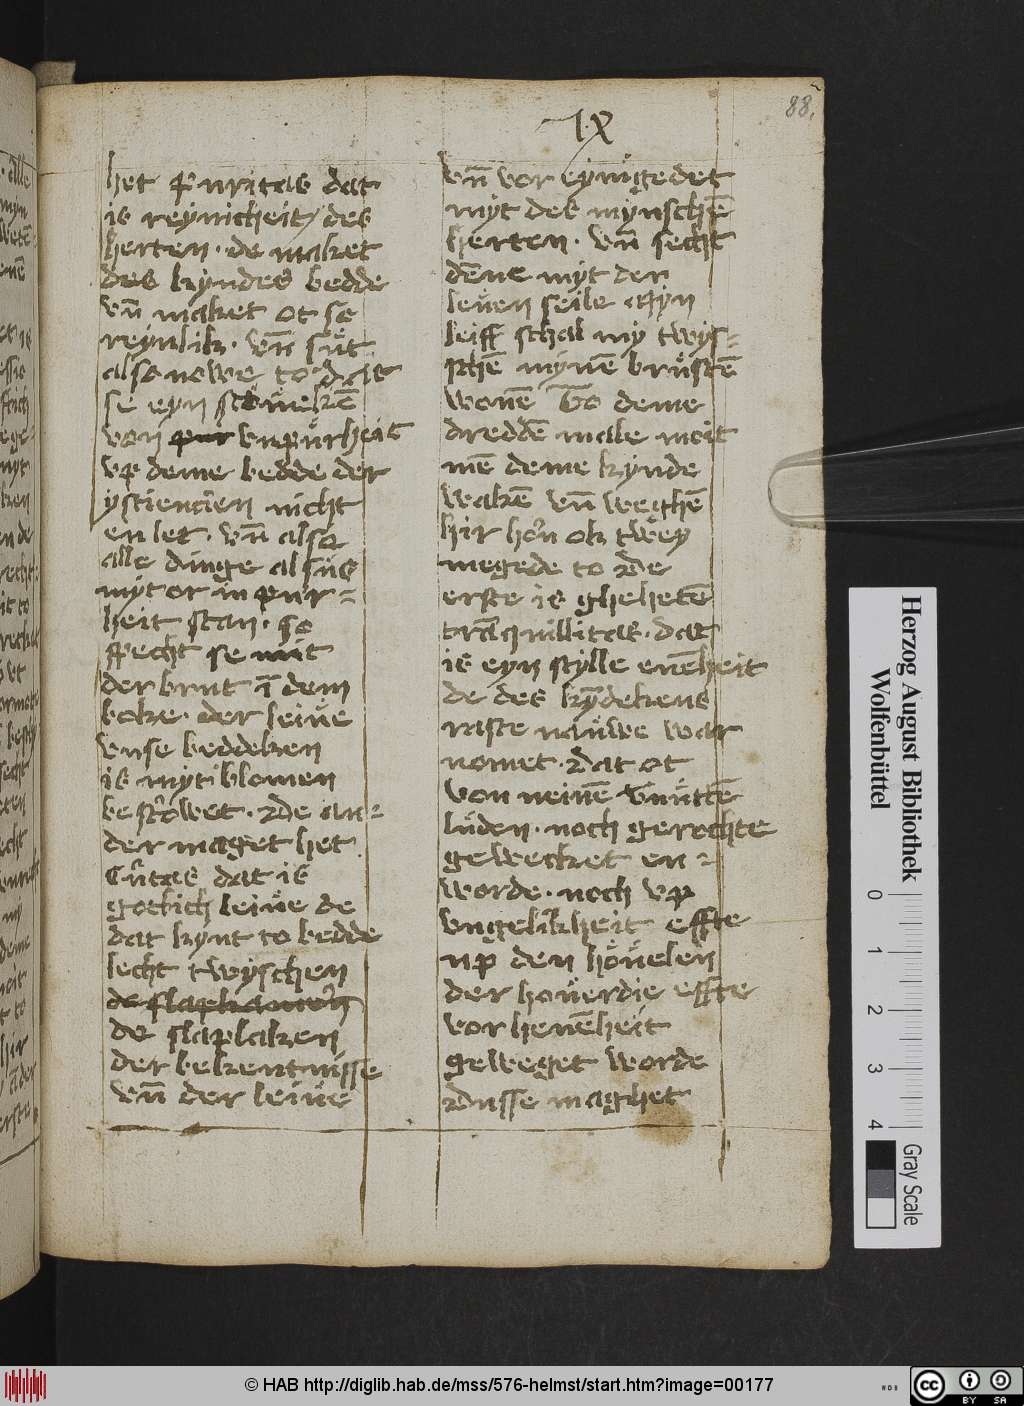 IX
88.
het puritas dat
is reynicheit des
herten · de maket
des kyndes bedde
vn̄ maket ot so
reynlik · vn̄ süt
also nowe to dat
se eyn stömekē
von pur vnpürheit
vp deme bedde der
nicht
en let · vn̄ also
alle dinge al süs
myt or in pur=
heit stan · so
secht se mit
der brut ī dem
boke · der leiue
vnse beddeken
is myt blomen
bestrowet · De an=
der maget het
Cūtas dat is
gotlich leiue de
dat kynt to bedde
lecht twyschen
de slaplaken
der bekentnisse
vn̄ der leiue
vn̄ vor eyniget
myt des mynschē
herten · vn̄ secht
dēne myt der
leuen seile Myn
leiff schal my twys=
schē mynē brüstē
wonē To deme
dreddē male moit
mē deme kynde
wakē vn̄ weghē
hir hörn ok twey
megede to De
erste is ghehetē
trāquillitas · dat
is eyn stylle euēheit
de des kȳdekens
raste nauwe war
nomet · Dat ot
von neinē vnuttē
lüden · noch gerochte
gewecket en =
worde · noch vp
vngelikheit effte
vp den höuelen
der houerdie effte
vorheuēheit
geweget worde
Dusse maghet
Herzog August Bibliothek
Wolfenbüttel
0 1 2 3 4
Gray Scale
© HAB http://diglib.hab.de/mss/576-helmst/start.htm?image=00177
WDB
cc BY SA